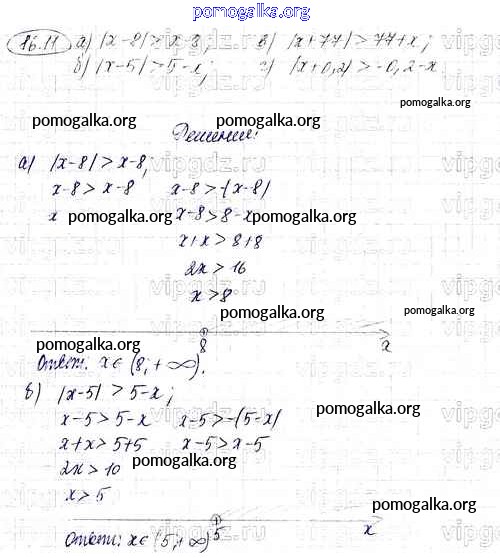 pomogalka.org
16.11 а) |x-8| > x-8; в) |x+77| > 77+x;
б) |x-5| > 5-x; г) |x+0,2| > -0,2-x
pomogalka.org pomogalka.org
Решение:
а) |x-8| > x-8;
pomogalka.org pomogalka.org
x-8 > x-8 x-8 > -(x-8)
x pomogalka.org x-8 > 8-x pomogalka.org
x+x > 8+8
2x > 16
x > 8
pomogalka.org 8 pomogalka.org x
Ответ: x∈(8; +∞).
б) |x-5| > 5-x;
pomogalka.org
x-5 > 5-x x-5 > -(5-x)
x+x > 5+5 x-5 > x-5
2x > 10 pomogalka.org
x > 5
pomogalka.org
5 x
Ответ: x∈(5; +∞)